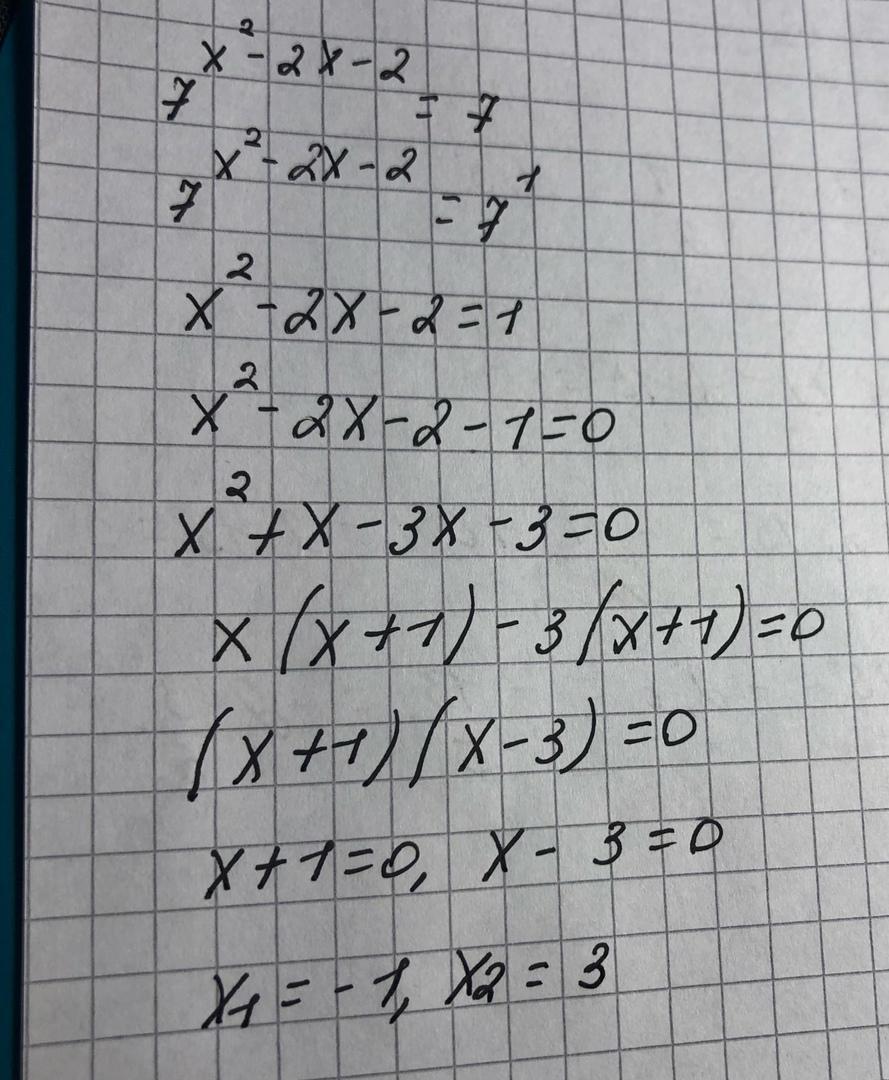 7^(x²-2x-2) = 7
7^(x²-2x-2) = 7^1
x²-2x-2=1
x²-2x-2-1=0
x²+x-3x-3=0
x(x+1)-3(x+1)=0
(x+1)(x-3)=0
x+1=0, x-3=0
x1=-1, x2=3